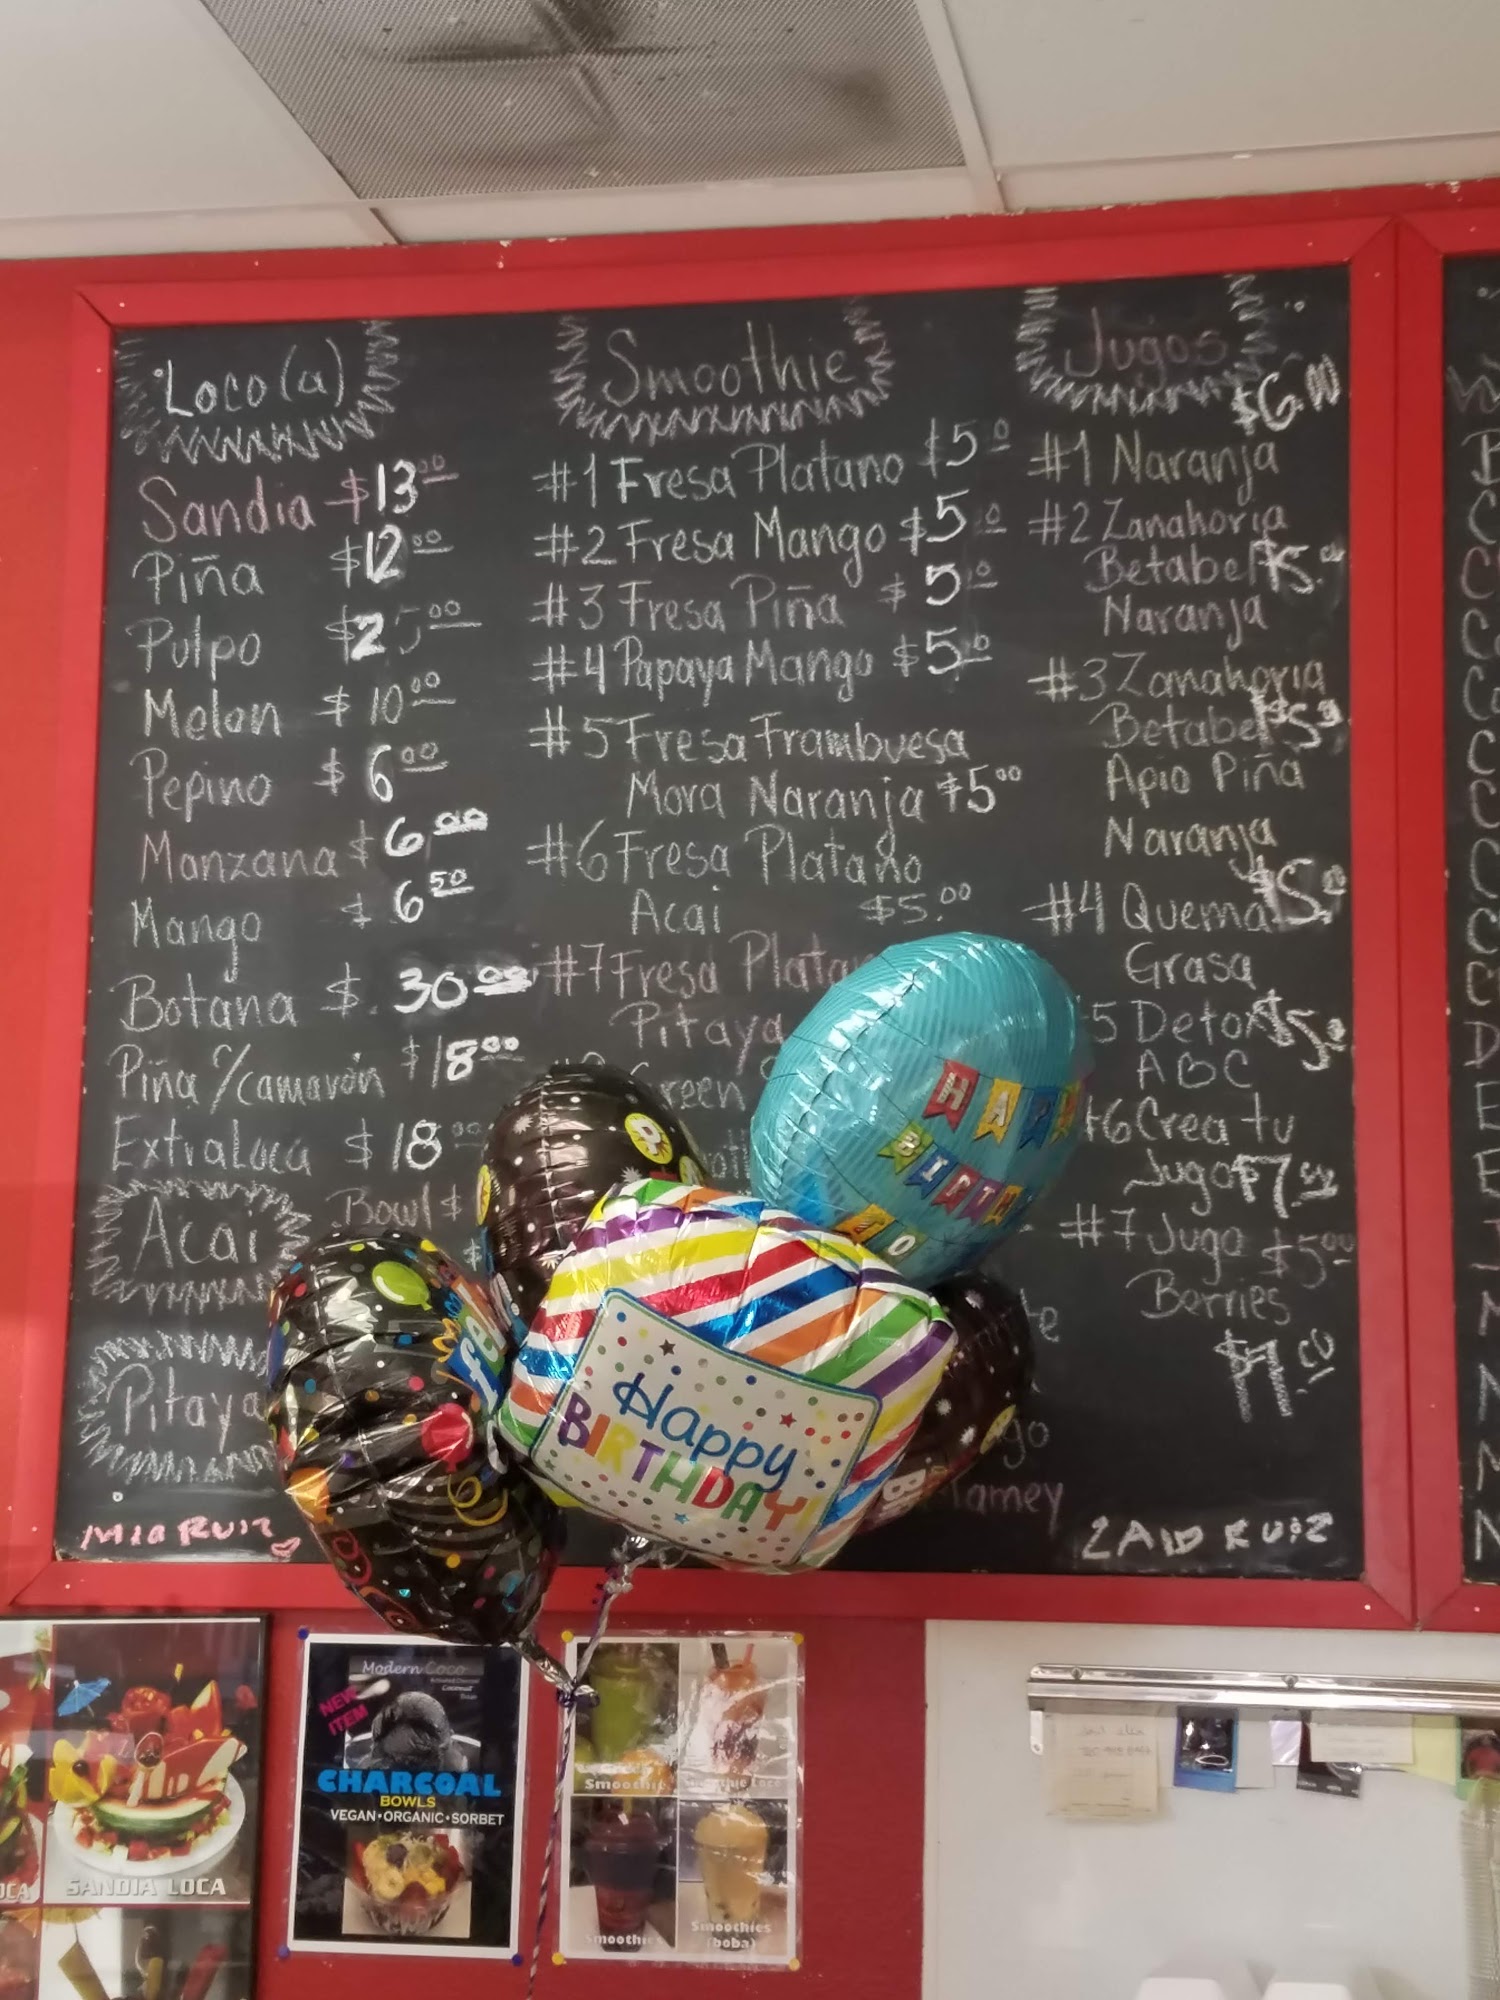 Loco(a)
Sandia $13.00
Piña $12.00
Pulpo $25.00
Melon $10.00
Pepino $6.00
Manzana $6.00
Mango $6.50
Botana $30.00
Piña c/camarón $18.00
Extra Loca $18.00
Acai
Bowl $
$
Pitaya
MIA RUIZ
Smoothie
#1 Fresa Platano $5.00
#2 Fresa Mango $5.00
#3 Fresa Piña $5.00
#4 Papaya Mango $5.00
#5 Fresa Frambuesa
Mora Naranja $5.00
#6 Fresa Platano
Acai $5.00
#7 Fresa Platan
Pitaya
Green
Mamey
Jugos
$6.00
#1 Naranja
#2 Zanahoria
Betabel $5.00
Naranja
#3 Zanahoria
Betabel $5.00
Apio Piña
Naranja
$5.00
#4 Quema
Grasa
#5 Detox $5.00
ABC
#6 Crea tu
Jugo $7.00
#7 Jugo $5.00
Berries
$7.00
ZAID RUIZ
HAPPY
BIRTH
Happy
BIRTHDAY!
SANDIA LOCA
Modern Coco
Coconut
NEW
ITEM
CHARCOAL
BOWLS
VEGAN•ORGANIC•SORBET
Smoothie
Smoothie Loco
Smoothies
Smoothies
(boba)